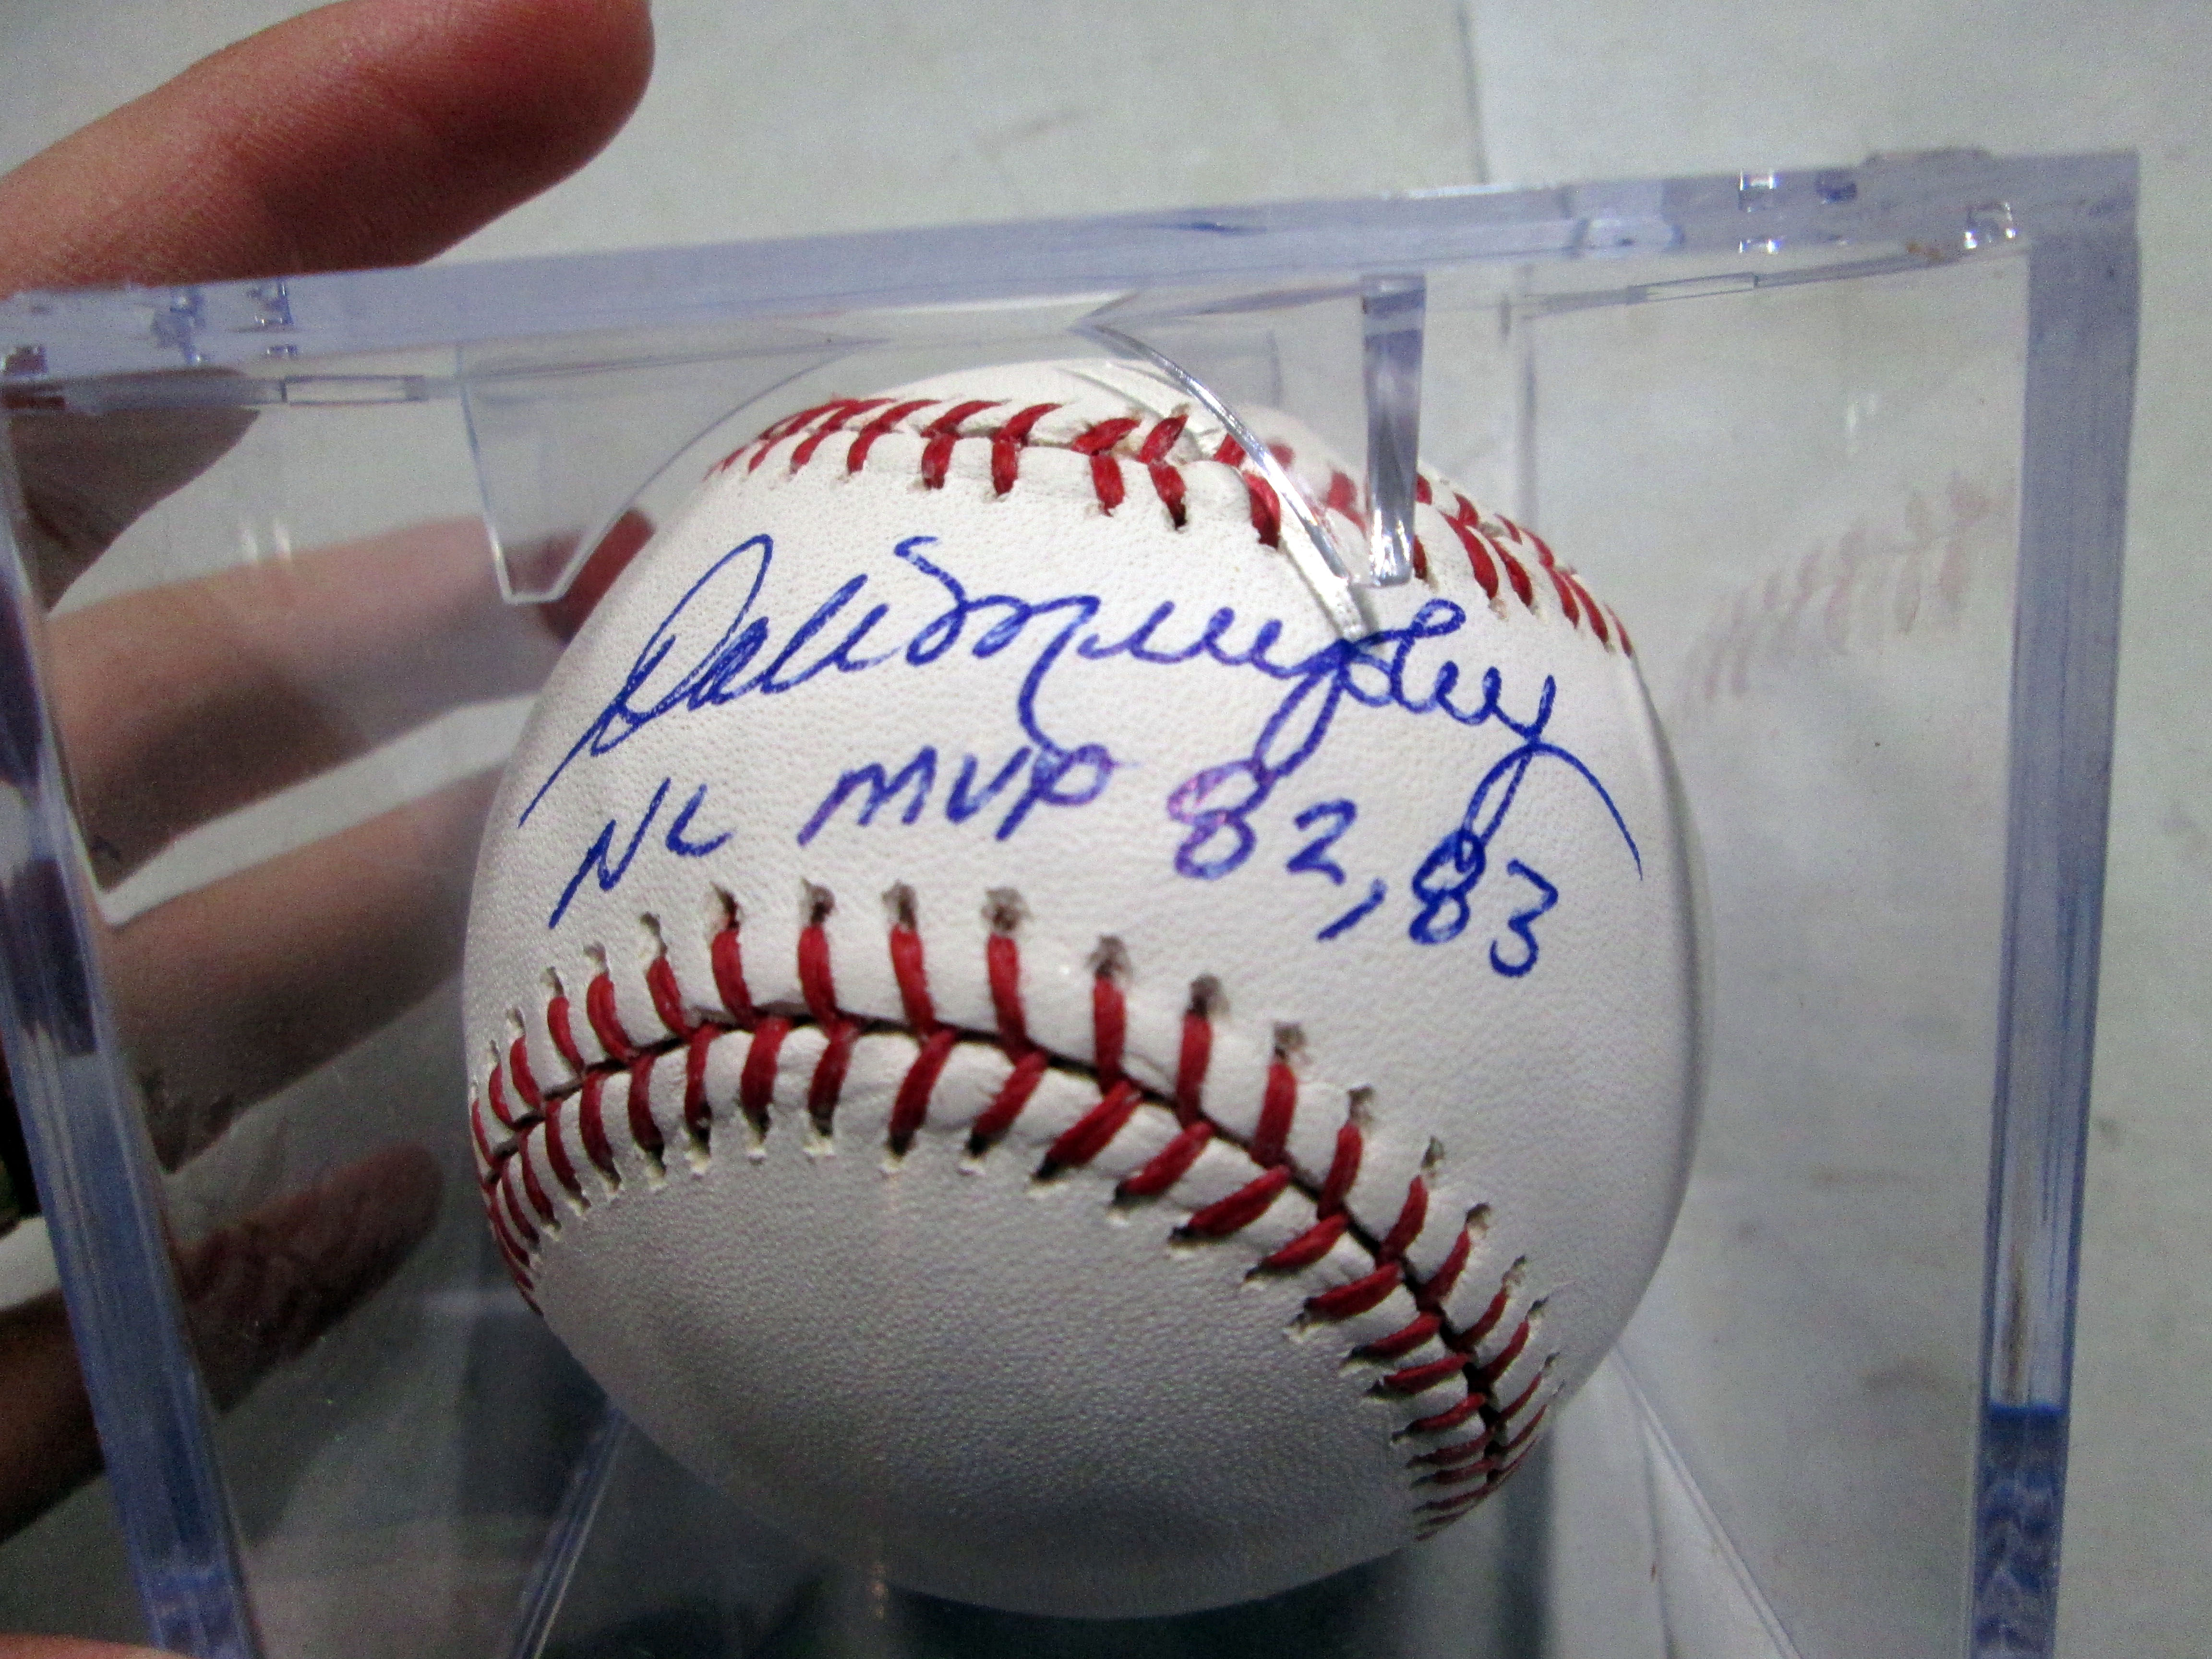 Dale Murphy
NL MVP 82, 83